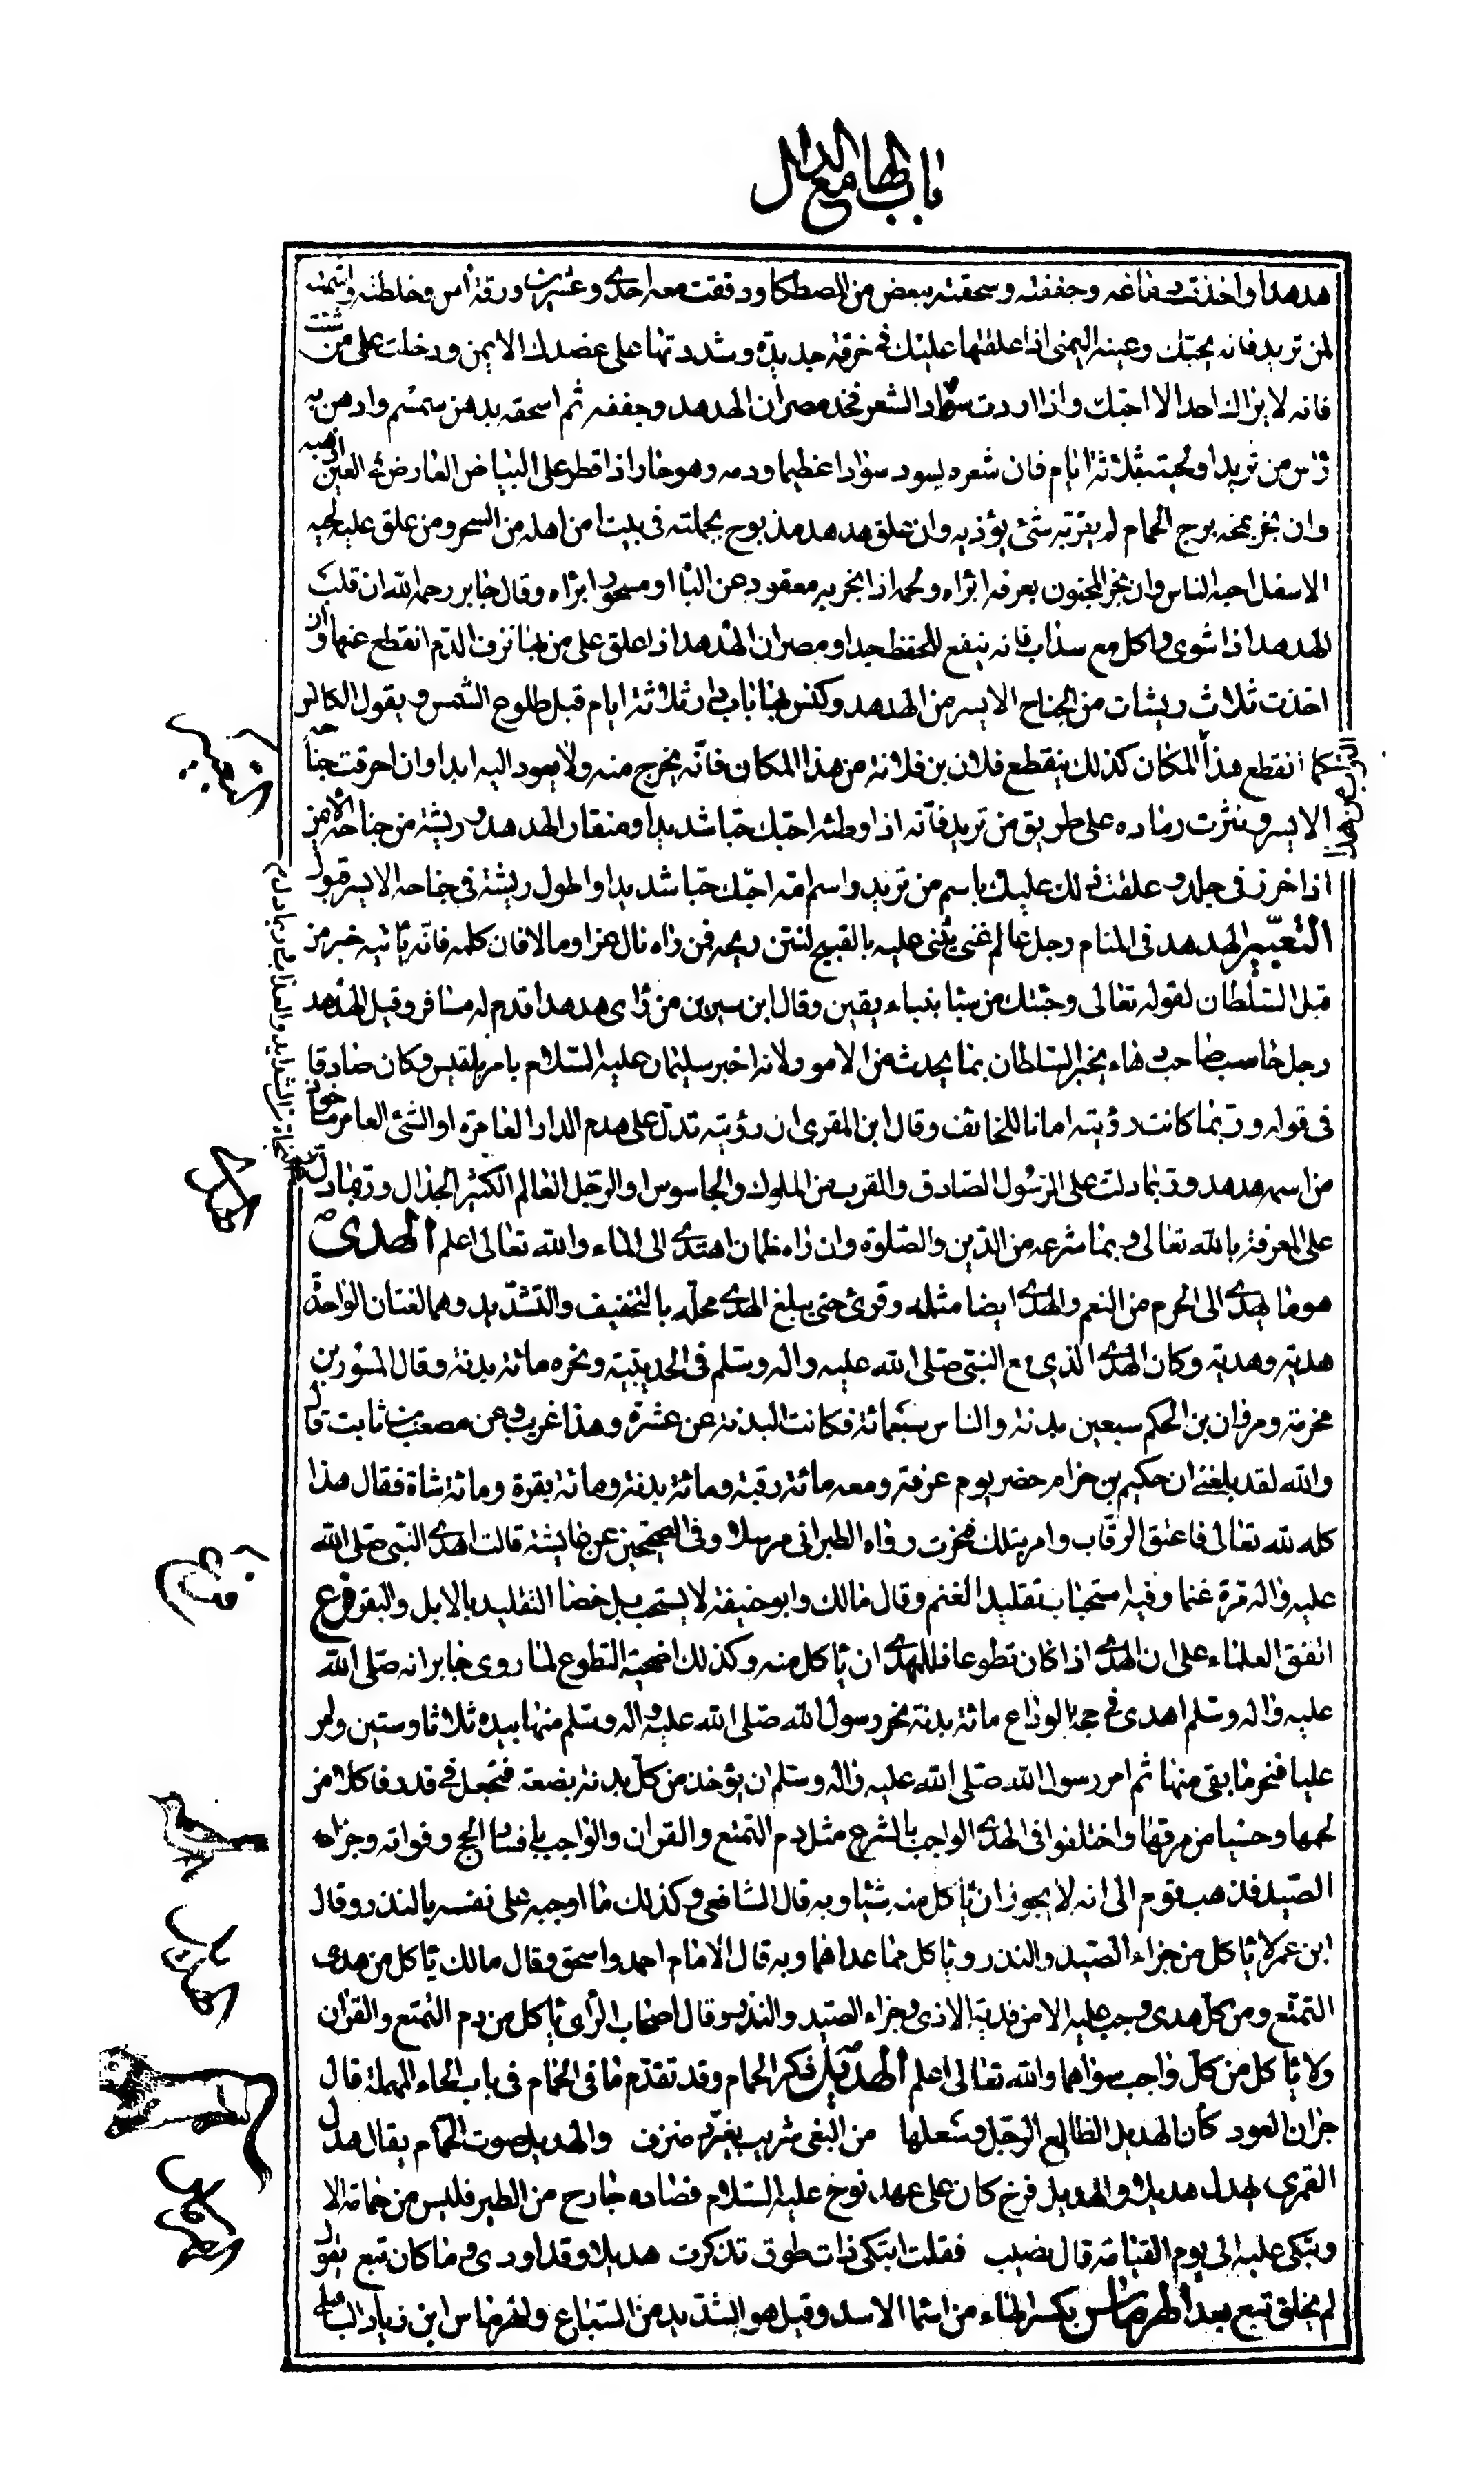 باب الها مع الدال
هدهدا واخذت دماغه وجففته وسحقته ببعض من المصطكا ودققت معه احدى وعشرين ورقة اس وخلطته واشممته
لمن تريد فانه يحبك وعينه اليمنى اذا علقتها عليك في خرقة جديدة وشددتها على عضدك الايمن ودخلت على من شئت
فانه لا يراك احد الا احبك واذا اردت سواد الشعر فخذ مصران الهدهد وجففه ثم اسحقه بدهن سمسم وادهن به
رأس من تريد او لحيته ثلاثة ايام فان شعره يسود سوادا عظيما ودمه وهو حار اذا قطر على البياض العارض في العين اذهبه
وان بخر بمخه برج الحمام لم يقربه شئ يؤذيه وان علق هدهد مذبوح بجملته في بيت امن اهله من السحر ومن علق عليه لحيه
الاسفل احبه الناس وان بخر المجنون بعرفه ابراه ولحمه اذا بخر به معقود عن النسا او مسحور ابراه وقال جابر رحمه الله ان قلب
الهدهد اذا شوى واكل مع سذاب فانه ينفع للحفظ جدا ومصران الهدهد اذا علق على من بها نزف الدم انقطع عنها وان
اخذت ثلاث ريشات من الجناح الايسر من الهدهد وكنس بها باب دار ثلاثة ايام قبل طلوع الشمس ويقول الكانس
كما انقطع هذا التراب من هذا المكان كذلك ينقطع فلان بن فلانة من هذا المكان فانه يخرج منه ولا يعود اليه ابدا وان احرقت جناحه
الايسر ونثرت رماده على طريق من تريد فانه اذا وطئه احبك حبا شديدا ومنقار الهدهد وريشة من جناحه الايمن
اذا خرز في جلد وعلقت ذلك عليك باسم من تريد واسم امه احبك حبا شديدا واطول ريشة في جناحه الايسر قبول
التعبير الهدهد في المنام رجل عالم غنى يثنى عليه بالقبيح لنتن ريحه فمن راه نال عزا ومالا فان كلمه فانه ياتيه خبر من
قبل السلطان لقوله تعالى وجئتك من سبا بنباء يقين وقال ابن سيرين من رأى هدهدا قدم له مسافر وقيل الهدهد
رجل حاسب صاحب دهاء يخبر السلطان بما يحدث من الامور لانه اخبر سليمان عليه السلام بامر بلقيس وكان صادقا
في قوله وربما كانت رؤيته امانا للخائف وقال ابن المقري ان رؤيته تدل على هدم الدار العامرة او الشئ العامر ماخوذ
من اسمه هدهد وربما دلت على الرسول الصادق والقرب من الملوك والجاسوس او الرجل العالم الكثير الجدال وربما دلت
على النجاة من الشدايد والعذاب وربما دل
على المعرفة بالله تعالى وبما شرعه من الدين والصلوة وان راه ظمان اهتدى الى الماء والله تعالى اعلم الهدى
هو ما يهدى الى الحرم من النعم والهدى ايضا مثله وقرئ حتى يبلغ الهدى محله بالتخفيف والتشديد وهما لغتان الواحدة
هدية وهدية وكان الهدى الذي مع النبي صلى الله عليه واله وسلم في الحديبية ونحره مائة بدنة وقال المسور بن
مخرمة ومروان بن الحكم سبعين بدنة والناس سبعمائة فكانت البدنة عن عشرة وهذا غريب وعن مصعب بن ثابت قال
والله لقد بلغني ان حكيم بن حزام حضر يوم عرفة ومعه مائة رقبة ومائة بدنة ومائة بقرة ومائة شاة فقال هذا
كله لله تعالى فاعتق الرقاب وامر بتلك فنحرت رواه الطبراني مرسلا وفي الصحيحين عن عايشة قالت اهدى النبي صلى الله
عليه واله مرة غنما وفيه استحباب تقليد الغنم وقال مالك وابو حنيفة لا يستحب بل خصا التقليد بالابل والبقر فرع
اتفق العلماء على ان الهدى اذا كان تطوعا فللمهدى ان ياكل منه وكذلك اضحية التطوع لما روى جابر انه صلى الله
عليه واله وسلم اهدى في حجة الوداع مائة بدنة نحر رسول الله صلى الله عليه واله وسلم منها بيده ثلاثا وستين وامر
عليا فنحر ما بقى منها ثم امر رسول الله صلى الله عليه واله وسلم ان يؤخذ من كل بدنة بضعة فتجعل في قدر فاكلا من
لحمها وحسيا من مرقها واختلفوا في الهدى الواجب بالشرع مثل دم التمتع والقران والواجب بافساد الحج وفواته وجزاء
الصيد فذهب قوم الى انه لا يجوز ان ياكل منه شيئا وبه قال الشافعي وكذلك ما اوجبه على نفسه بالنذر وقال
ابن عمر لا ياكل من جزاء الصيد والنذر وياكل مما عداهما وبه قال الامام احمد واسحق وقال مالك ياكل من هدى
التمتع ومن كل هدى وجب عليه الا من فدية الاذى وجزاء الصيد والنذر وقال اصحاب الرأى ياكل من دم التمتع والقران
ولا ياكل من كل واجب سواهما والله تعالى اعلم الهديل ذكر الحمام وقد تقدم ما في الحمام في باب الحاء المهملة قال
جران العود كأن الهديل الظالع الرجل وسطها من البغى شريب يغرد منزف والهديل صوت الحمام يقال هدل
القمرى يهدل هديلا والهديل فرخ كان على عهد نوح عليه السلام فصاده جارح من الطير فليس من حمامة الا
وتبكى عليه الى يوم القيامة قال نصيب فقلت اتبكى ذات طوق تذكرت هديلا وقد اودى وما كان تبع يقول
لم يخلق تبع بعد الهرماس بكسر الهاء من اسماء الاسد وقيل هو الشديد من السباع والهرماس ابن زياد الباهلى
الهدى
فرع
الهديل
الهرماس